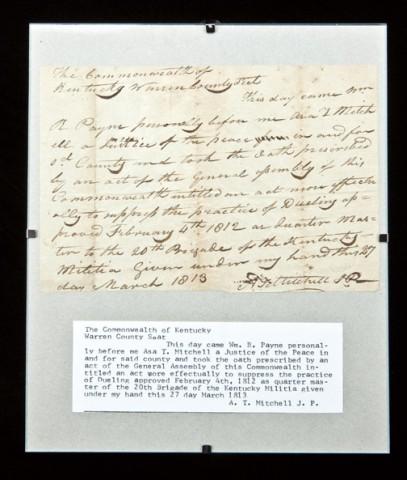 The Commonwealth of
Kentucky Warren County Sct
This day came Wm
R Payne personally before me Asa T Mitch
ell a Justice of the peace in and for
sd County and took the Oath prescribed
by an act of the General assembly of this
Commonwealth intitled an act more effectu
ally to suppress the practice of Dueling ap-
proved February 4th 1812 as quarter Mas-
ter to the 20th Brigade of the Kentucky
Militia Given under my hand this 27
day March 1813
A T Mitchell J P
The Commonwealth of Kentucky
Warren County Seat
This day came Wm. B. Payne personal-
ly before me Asa T. Mitchell a Justice of the Peace in
and for said county and took the oath prescribed by an
act of the General Assembly of this Commonwealth in-
titled an act more effectually to suppress the practice
of Dueling approved February 4th, 1812 as quarter mas-
ter of the 20th Brigade of the Kentucky Militia given
under my hand this 27 day March 1813
A. T. Mitchell J. P.